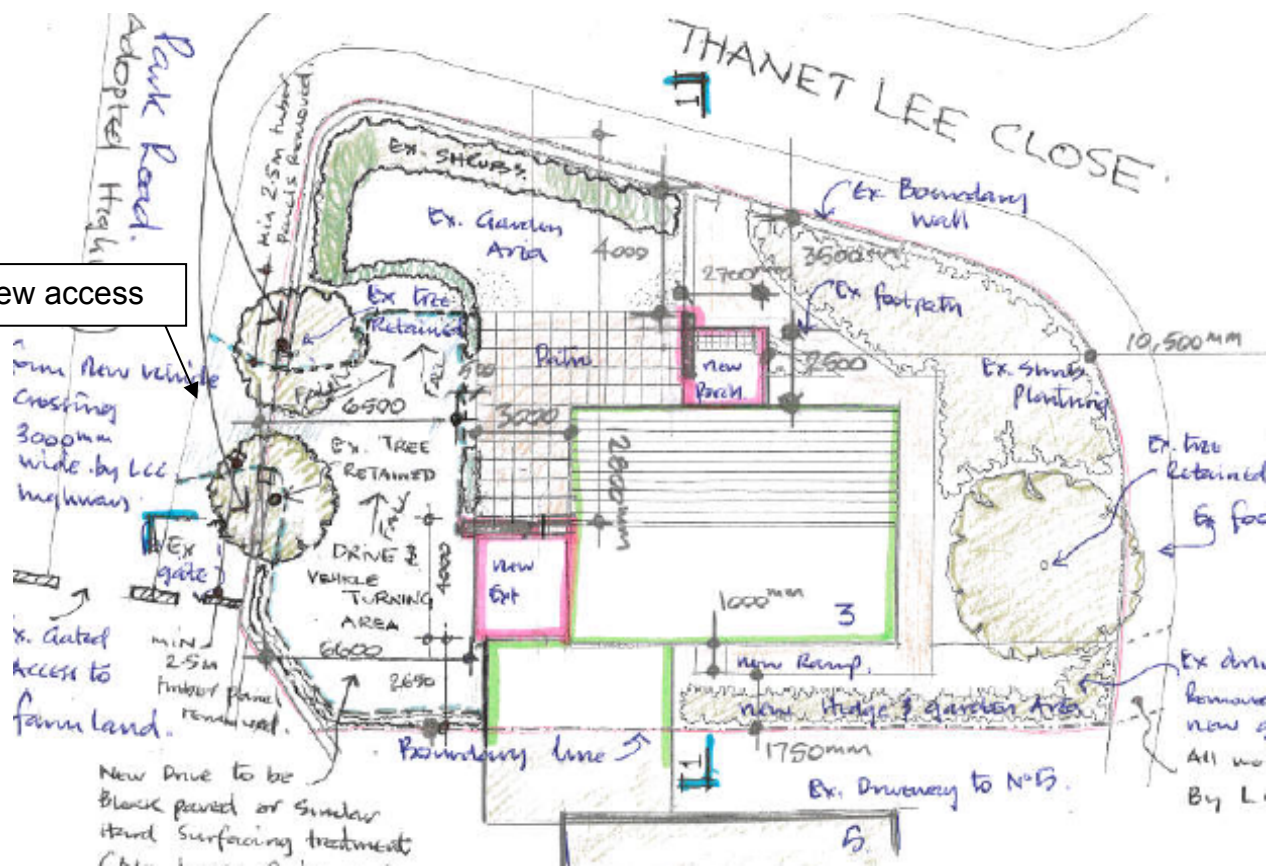 THANET LEE CLOSE.
Park Road.
Adopted High
Min 2.5m timber
panels Removed.
1
Ex. SHRUBS.
Ex. Garden
Area
4000
Ex. Boundary
wall
3500mm
2700mm
Ex footpath
2500
10,500mm
ew access
Ex tree
Retained
Patio
new
Porch.
Ex. Shrubs
Planting
New vehicle
crossing
3000mm
wide by LCC
highways.
6500
3000
12800mm
Ex. TREE
RETAINED
Ex. tree
Retained
Ex foo
Ex
gate
DRIVE &
VEHICLE
TURNING
AREA
4000
new
Ext
1000mm
3
x. Gated
Access to
farmland.
MIN
2.5m
timber panel
removed.
6600
2650
new Ramp.
new Hedge & garden Area
Ex driv
Remove
new g
All wo
By L
Boundary line
1
1750mm
Ex. Driveway to No 5.
New Drive to be
Block paved or Similar
Hard Surfacing treatment
5.